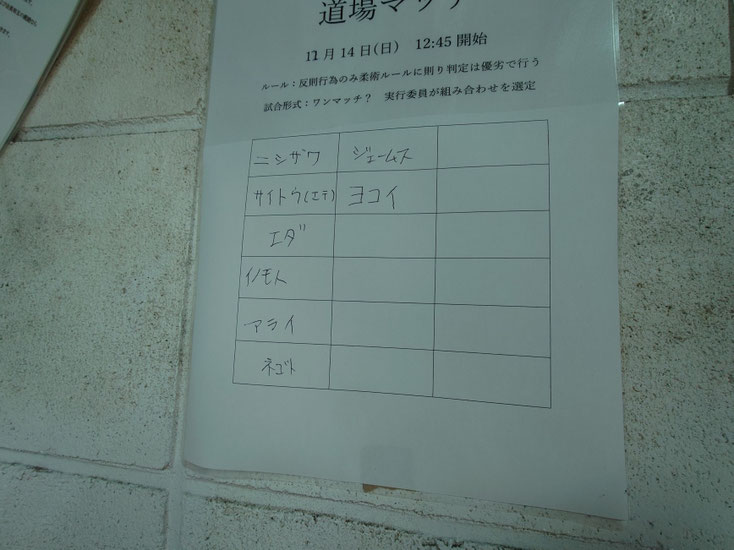 道場マッチ
11月14日(日) 12:45開始
ルール：反則行為のみ柔術ルールに則り判定は優劣で行う
試合形式：ワンマッチ？ 実行委員が組み合わせを選定
ニシザワ ジェームス
サイトウ(エテ) ヨコイ
エダ
イノモト
アライ
ネゴト